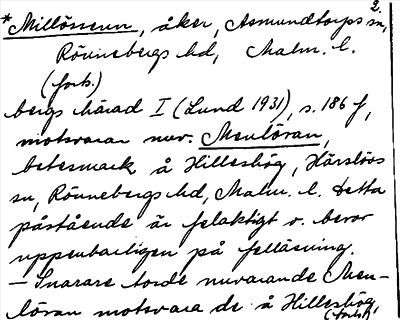 2.
*Millösseun, åker, Asmundtorps sn,
Rönnebergs hd, Malm. l.
(forts.)
bergs härad I (Lund 1931), s. 186 f,
motsvarar nuv. Menlöran,
betesmark å Hilleshög, Härslövs
sn, Rönnebergs hd, Malm. l. Detta
påstående är felaktigt o. beror
uppenbarligen på felläsning.
– Snarare torde nuvarande Men-
löran motsvara de å Hilleshög,
(forts.)